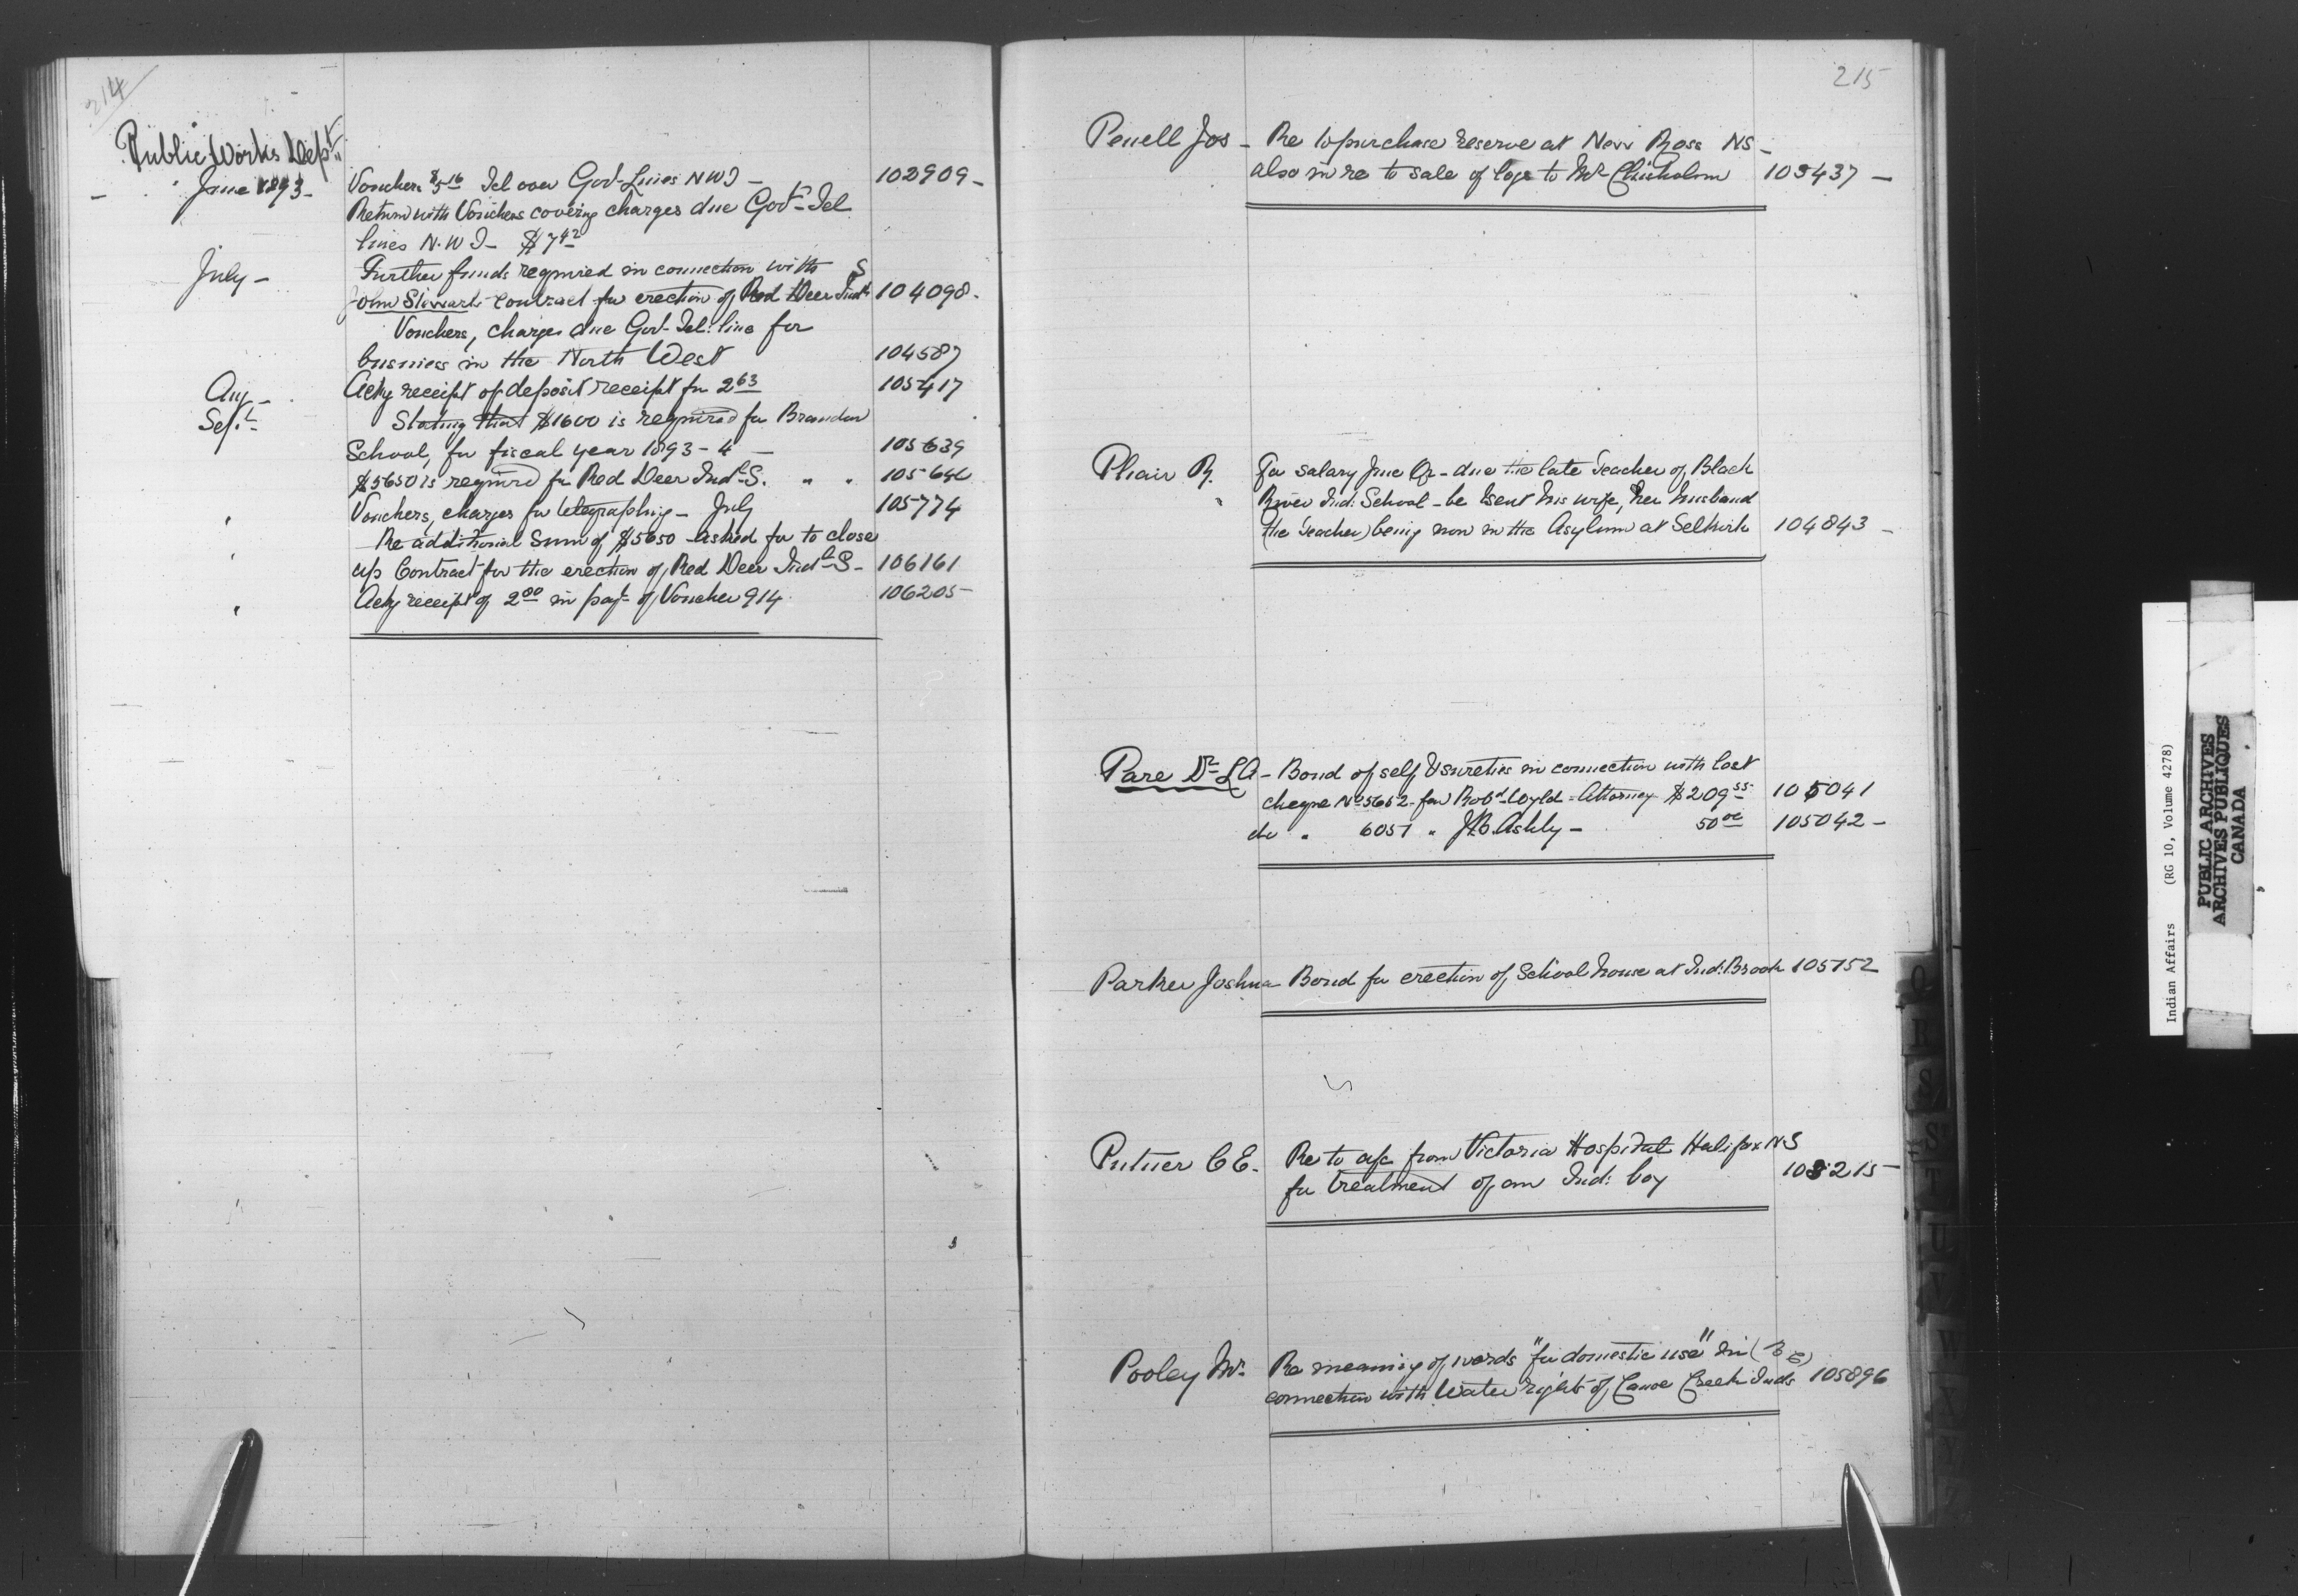 214
Public Works Dept
June 1893 - Vouchers $5 16 Tel over Govt Lines NWT - 102909 -
Return with Vouchers covering charges due Govt Tel
lines N.W.T - $7 42
July - Further funds required in connection with S
John Stewarts contract for erection of Red Deer Indl 104098 -
Vouchers, charges due Govt Tel: line for
business in the North West 104587
Aug - Ackg receipt of deposit receipt for 2 63 105417
Sept. Stating that $1600 is required for Brandon
School, for fiscal year 1893-4 - 105639
$5650 is required for Red Deer Indl S. " " 105640
" Vouchers, charges for telegraphing - July 105774
Re additional sum of $5650 asked for to close
" up Contract for the erection of Red Deer Indl S - 106161
" Ackg receipt of 2 00 in payt of Voucher 914 106205 -
215
Penell Jos - Re to purchase reserve at New Ross NS -
also in re to sale of logs to Mr Chisholm 103437 -
Phair R. For salary June Qr - due the late Teacher of Black
" River Ind: School - be sent his wife, her husband
(the Teacher) being now in the Asylum at Selkirk 104843 -
Pare Dr L A - Bond of self & sureties in connection with lost
cheque No 5652 - for Robd Wyld - Attorney $209 55 105041
do " 6051 " J.B. Ashly - 50 00 105042 -
Parker Joshua - Bond for erection of School house at Ind: Brook 105152
Putner C E. Re to a/c from Victoria Hospital Halifax NS
for treatment of an Ind: boy 105215 -
Pooley Mr. Re meaning of words "for domestic use" in (BC)
connection with Water rights of Canoe Creek Inds 105896
Q
R
S
S
T
U
V
W
X
Y
Z
Indian Affairs (RG 10, Volume 4278)
PUBLIC ARCHIVES
ARCHIVES PUBLIQUES
CANADA